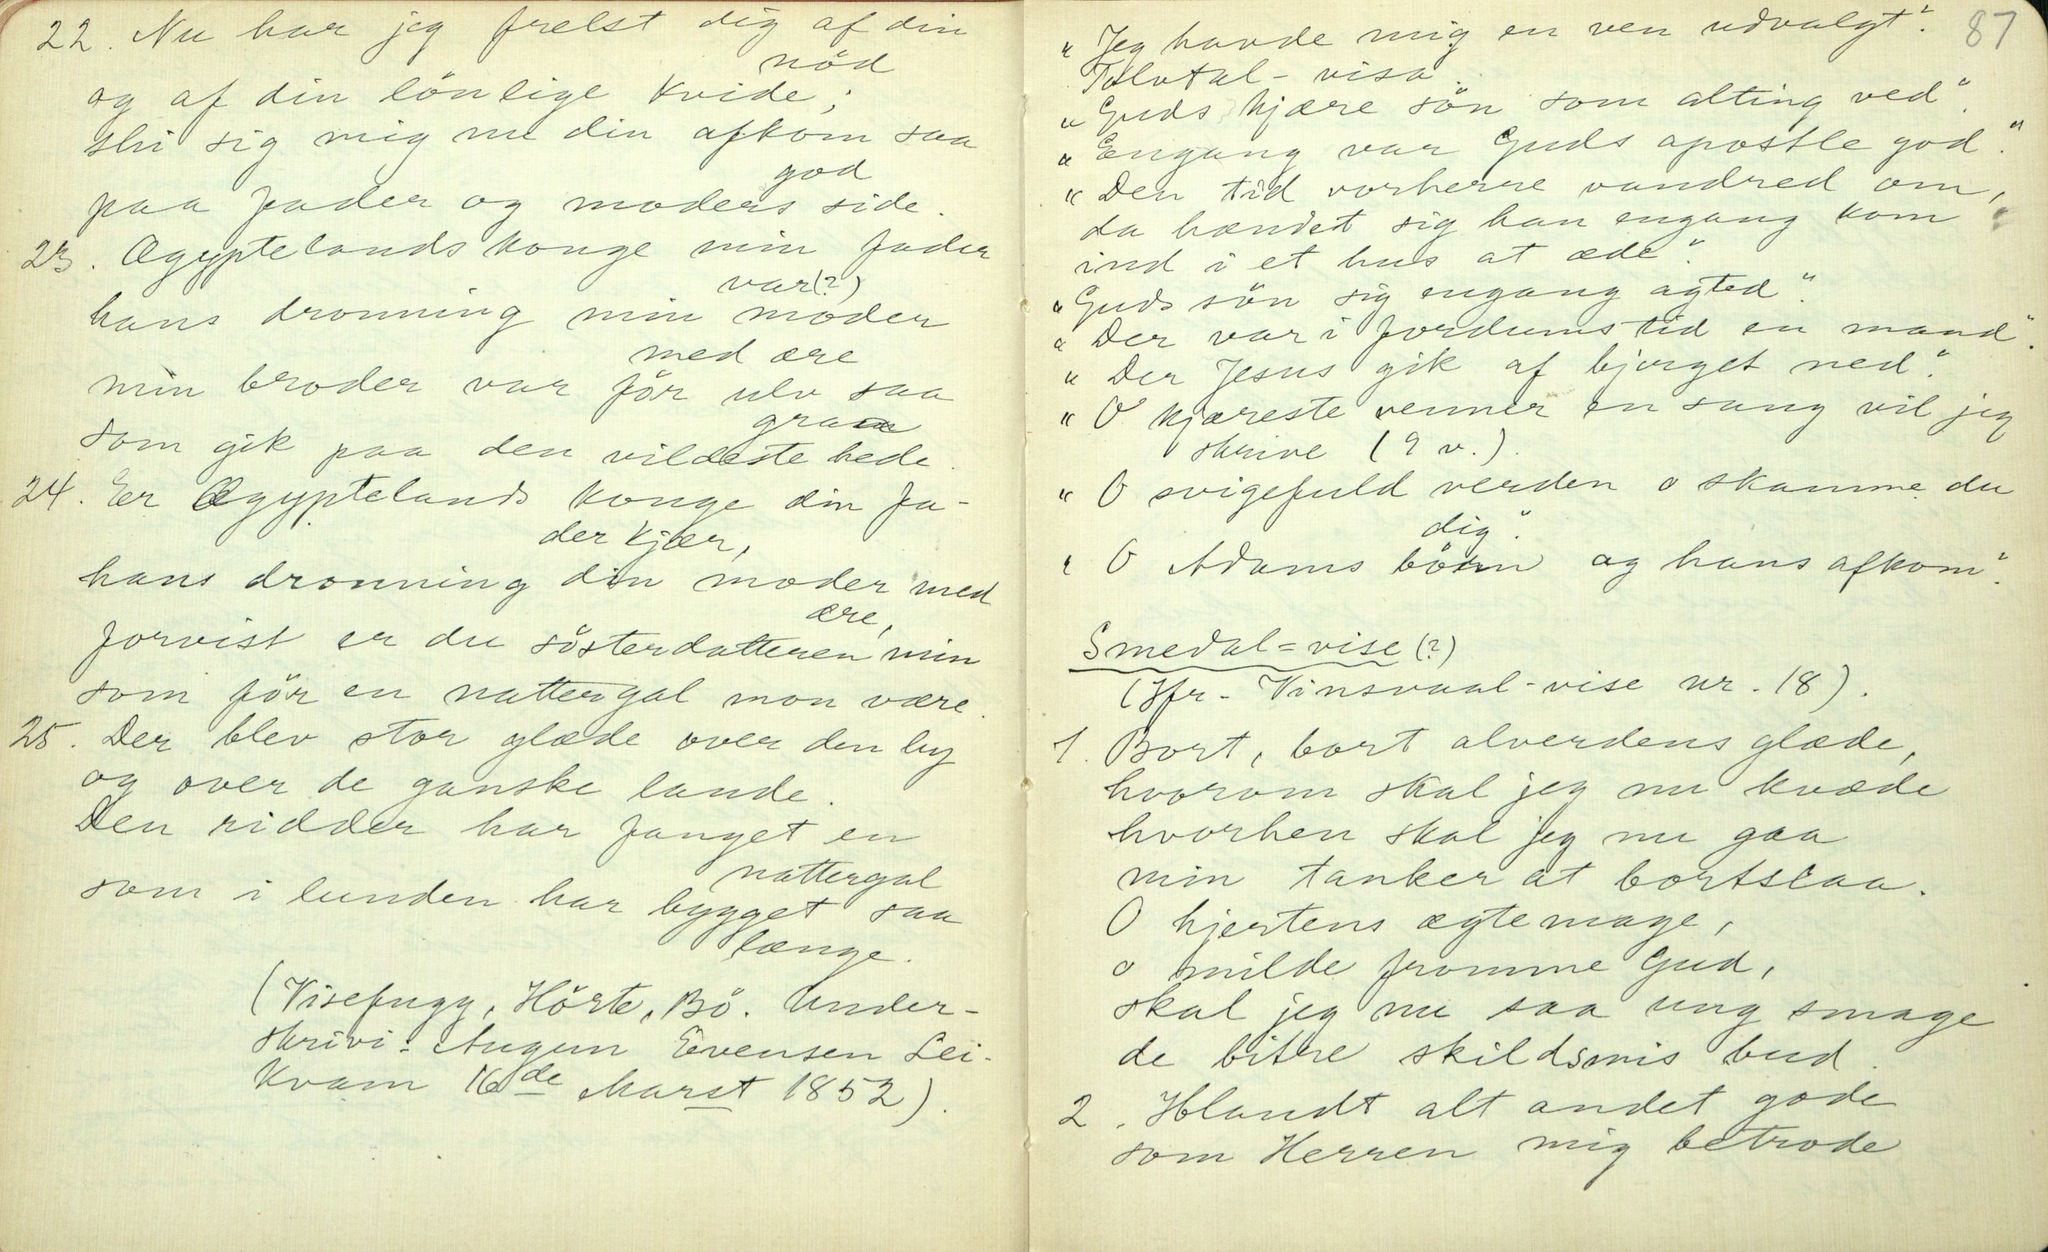 22. Nu har jeg frelst dig af din
nöd
og af din lönlige kvide;
sli sig mig nu din afkom saa
god
paa fader og moders side.
23. Ægyptelands konge min fader
var(?)
hans dronning min moder
med ære
min broder var för ulv saa
graa
som gik paa den vildeste hede.
24. Er Ægyptelands konge din fa-
der kjær,
hans dronning din moder med
ære,
forvist er du sösterdatteren min
som för en nattergal mon være.
25. Der blev stor glæde over den by
og over de ganske lande.
Den ridder har fanget en
nattergal
som i lunden har bygget saa
længe.
(Visefugg, Hörte, Bö. Under-
skrivi: Augun Evensen Lei-
kvam 16de Marst 1852).
87
"Jeg havde mig en ven udvalgt".
Tolvtal-visa.
"Guds kjære sön som alting ved".
"Engang var Guds apostle god".
"Den tid vorherre vandred om,
da hændet sig han engang kom
ind i et hus at æde".
"Guds sön sig engang agted".
"Der var i fordumstid en mand".
"Der Jesus gik af bjerget ned".
"O kjæreste venner en sang vil jeg
skrive (9 v.).
"O svigefuld verden o skamme du
dig".
"O Adams börn og hans afkom".
Smedal=vise(?)
(Jfr. Vinsvaal-vise nr. 18).
1. Bort, bort alverdens glæde,
hvorom skal jeg nu kvæde
hvorhen skal jeg nu gaa
min tanker at bortslaa.
O hjertens ægtemage,
o milde fromme Gud,
skal jeg nu saa ung smage
de bitre skildsmis bud.
2. Iblandt alt andet gode
som Herren mig betrode